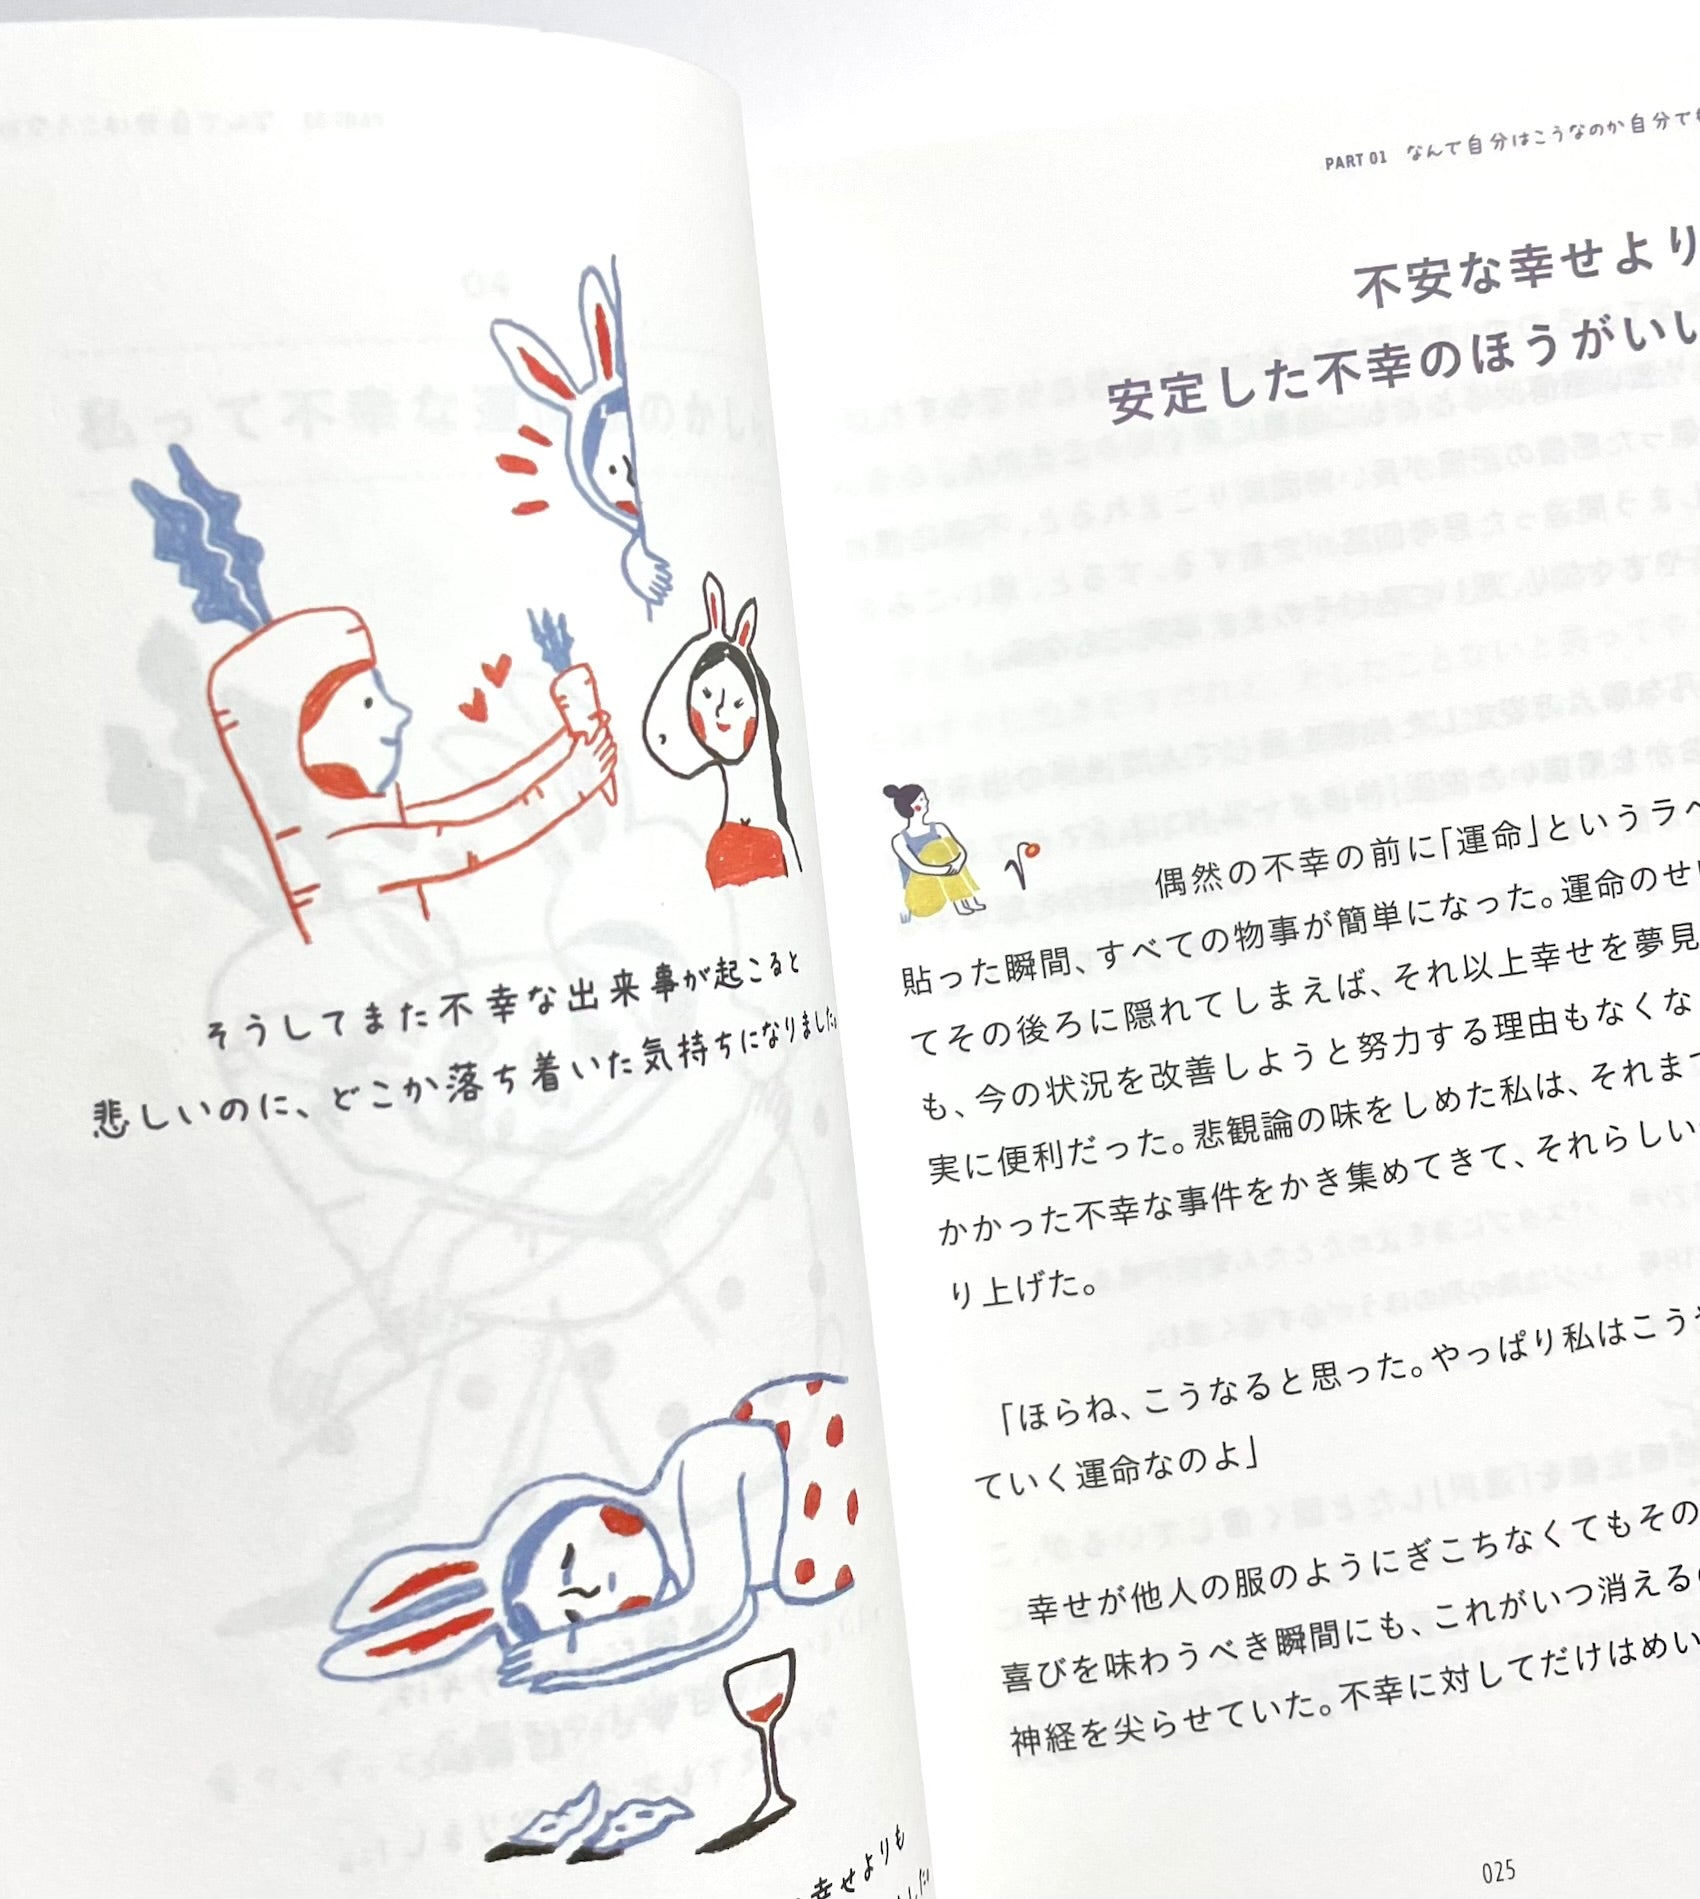 そうしてまた不幸な出来事が起こると
悲しいのに、どこか落ち着いた気持ちになりました。
幸せよりも
PART 01 なんで自分はこうなのか自分で
不安な幸せより
安定した不幸のほうがいい
偶然の不幸の前に「運命」というラベ
貼った瞬間、すべての物事が簡単になった。運命のせい
てその後ろに隠れてしまえば、それ以上幸せを夢見
も、今の状況を改善しようと努力する理由もなくな
実に便利だった。悲観論の味をしめた私は、それまで
かかった不幸な事件をかき集めてきて、それらしい
り上げた。
「ほらね、こうなると思った。やっぱり私はこう
ていく運命なのよ」
幸せが他人の服のようにぎこちなくてもその
喜びを味わうべき瞬間にも、これがいつ消える
神経を尖らせていた。不幸に対してだけはめい
025